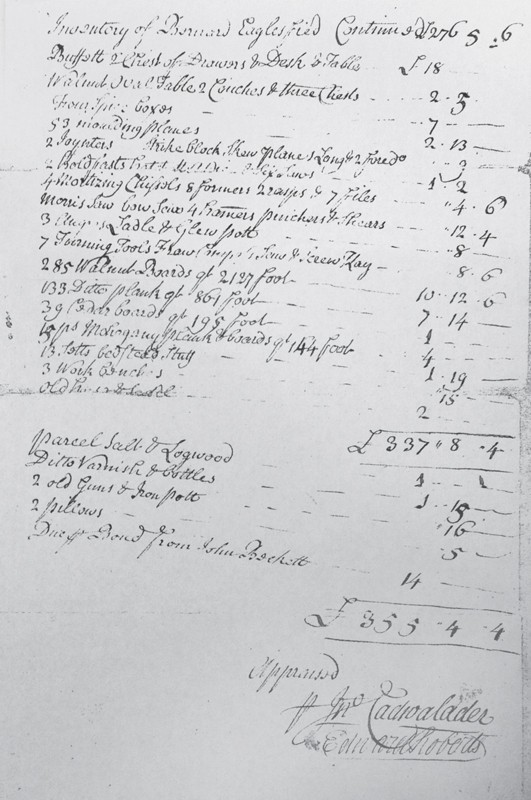 Inventory of Bernard Eaglesfied Continued £276 5 6
Buffett 2 Chest of Drawers & Desk & Table £18
Walnut Oval Table 2 Couches & three Chests 2 5
Four boxes 7
53 moulding planes 2 13
2 Joynters Strike block, Skew planes Long & 2 fore do 3
2 Holdfasts 1 2
4 Mortizing Chissols 8 formers 2 rasps & 7 files 4 6
Saw bow Saw 4 Hamers pinchers & Shears 12 4
3 Ladle & Glew pott 8
7 Turning Tools Saw & Screw Kay 8 6
285 Walnut Boards qt 2127 foot 10 12 6
133 Ditto plank qt 861 foot 7 14
39 Cedar boards qt 195 foot 1
ps Mohogany plank & boards qt 144 foot 4
13 Setts bedsteed Stuff 1 19
3 Work benches 15
old 2
£337 8 4
Parcel Salt & Logwood 1 1
Ditto Varnish & bottles 1 15
2 old Guns & Iron pott 16
2 pillows 5
Due pr Bond from John Beckett 14
£355 4 4
Appraised
pr Jno Cadwalader
Edward Roberts